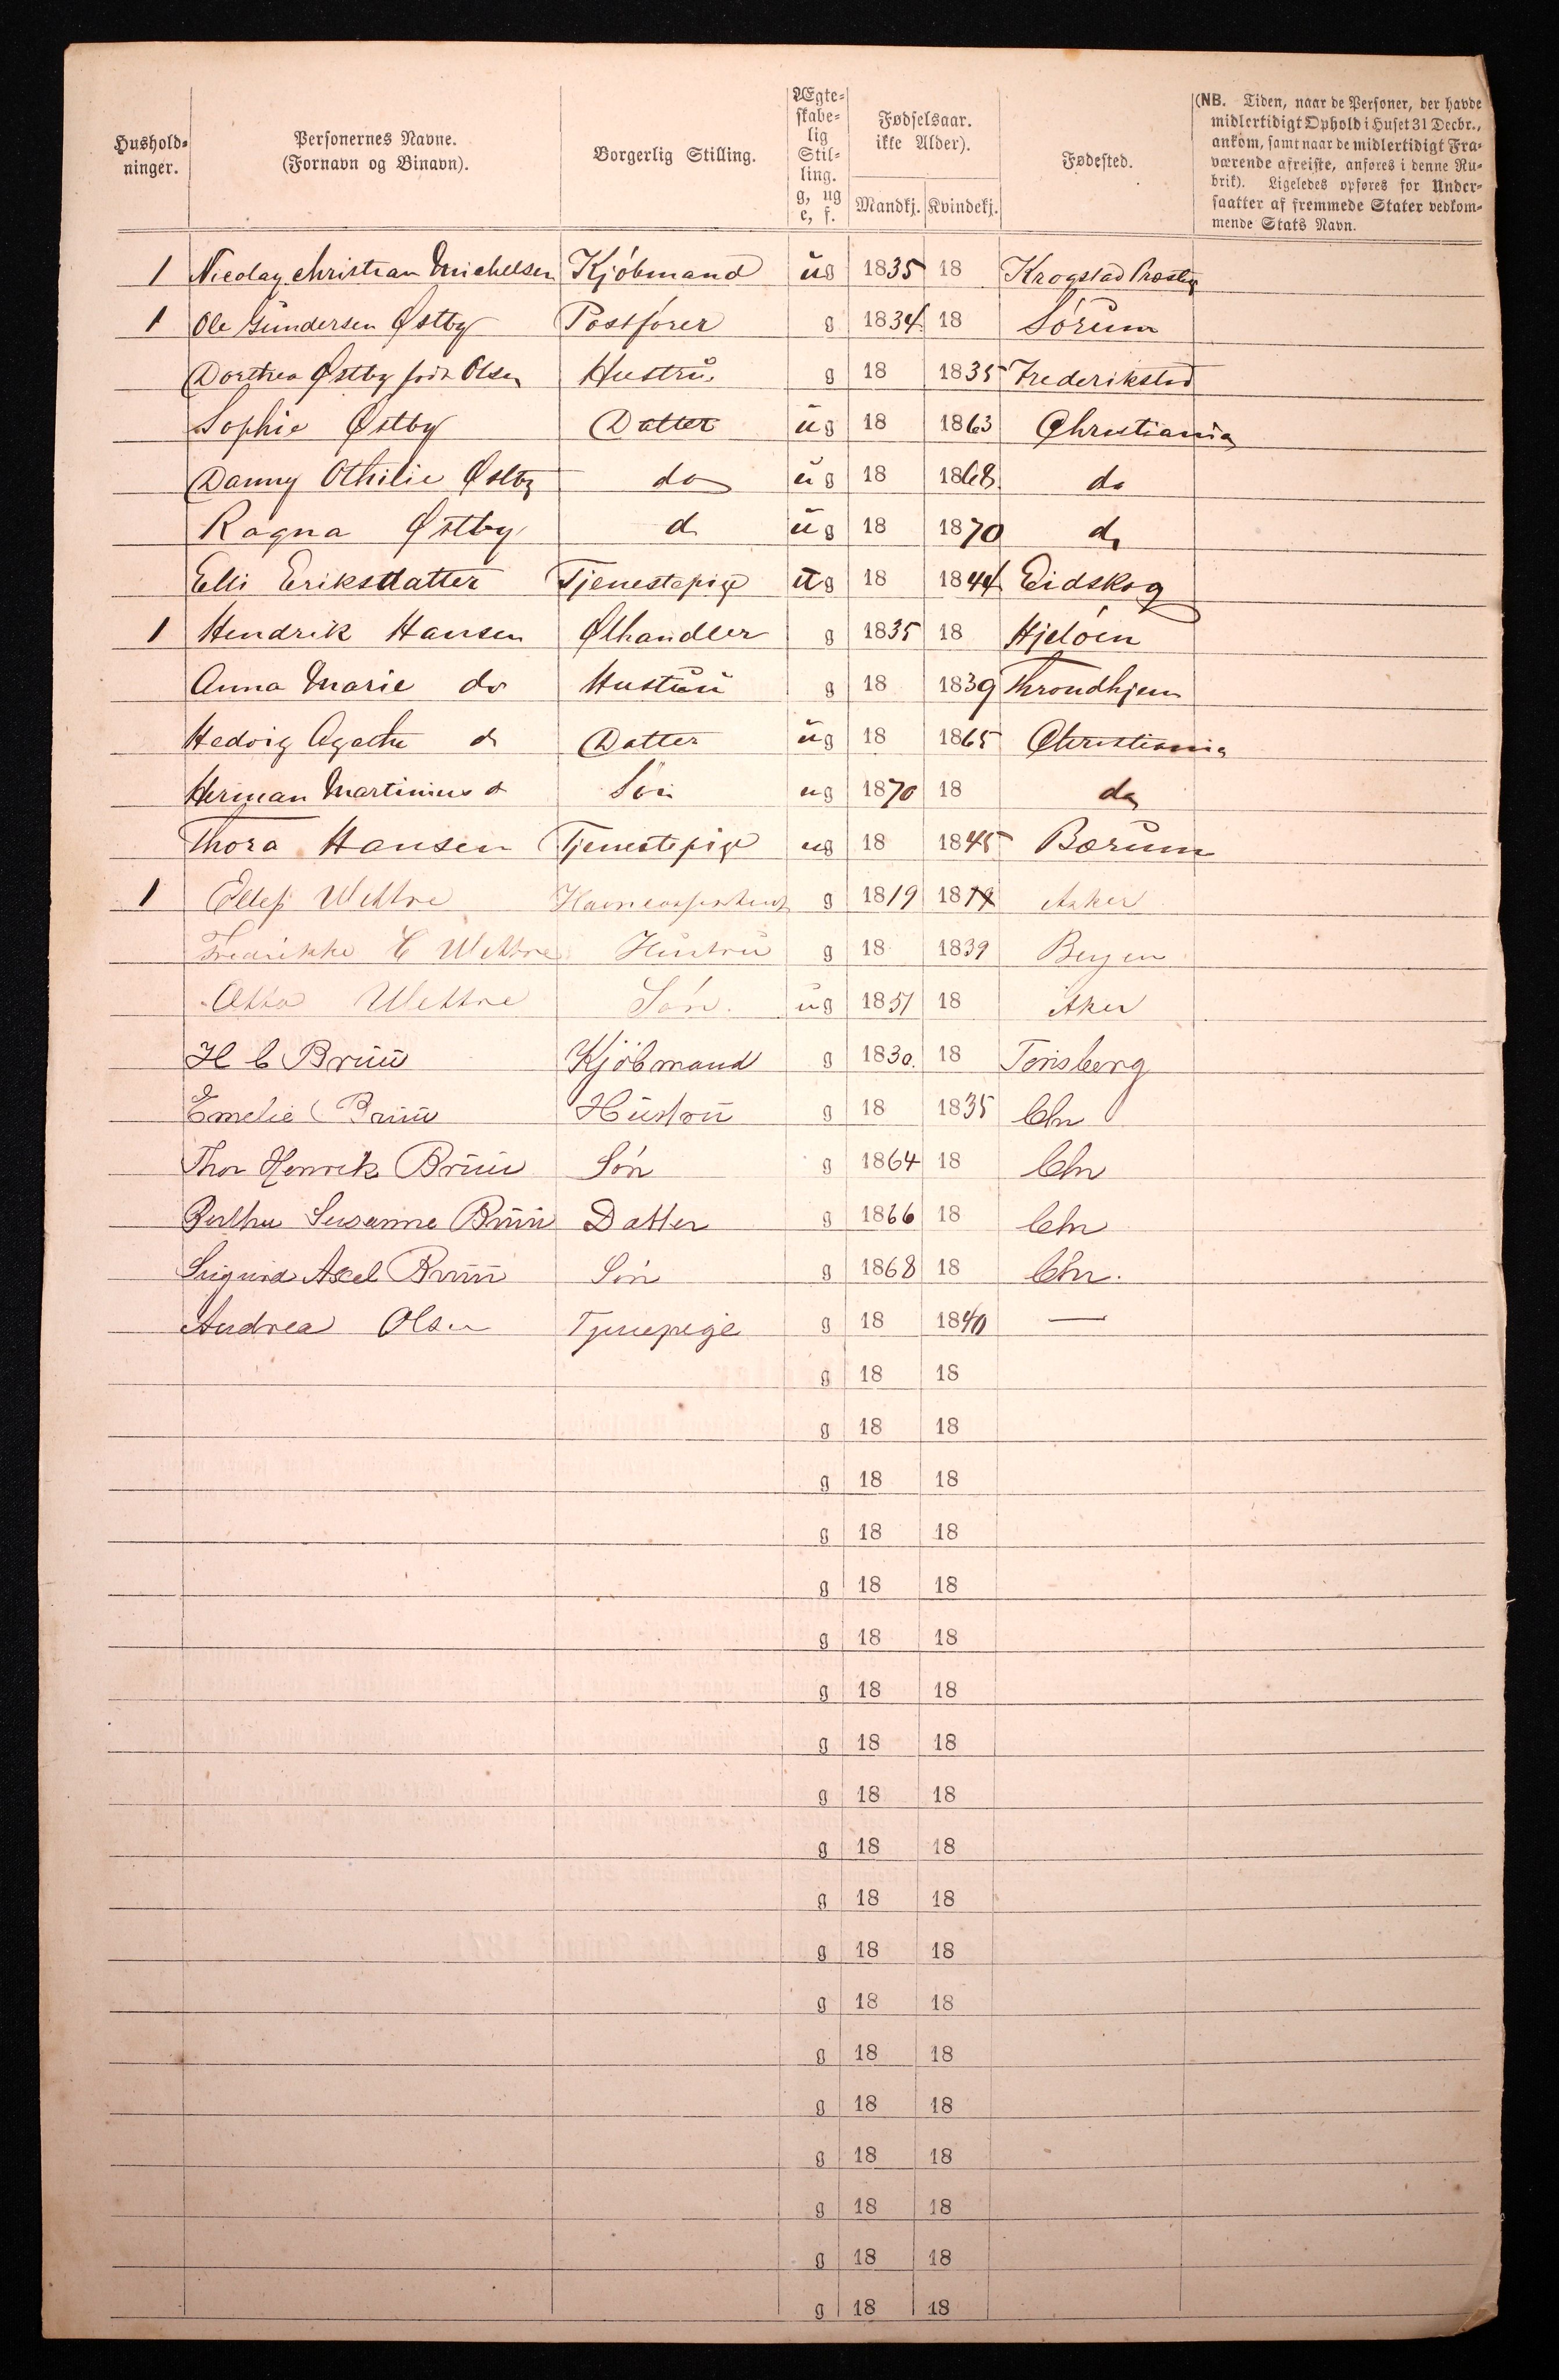 Hushold-
ninger.
Personernes Navne.
(Fornavn og Binavn).
Borgerlig Stilling.
Ægte-
skabe-
lig
Stil-
ling.
g, ug
e, f.
Fødselsaar.
ikke Alder).
Mandkj. Kvindekj.
Fødested.
(NB. Tiden, naar de Personer, der havde
midlertidigt Ophold i Huset 31 Decbr.,
ankom, samt naar de midlertidigt Fra-
værende afreiste, anføres i denne Ru-
brik). Ligeledes opføres for Under-
saatter af fremmede Stater vedkom-
mende Stats Navn.
1 Nicolay Christian Michelsen Kjöbmand ug 1835 18 Krogstad Præstg
1 Ole Gundersen Østby Postförer g 1834 18 Sörum
Dorthea Østby född Olsen Hustru. g 18 1835 Frederikstad
Sophie Østby Datter ug 18 1863 Christiania
Danny Othilie Østby do ug 18 1868 do
Ragna Østby d ug 18 1870 do
Elli Eriksdatter Tjenestepige ug 18 1844 Eidskog
1 Hendrik Hansen Ølhandler g 1835 18 Hjelöen
Anna Marie do Hustru g 18 1839 Throndhjem
Hedvig Agathe do Datter ug 18 1865 Christiania
Herman Martinius do Sön ug 1870 18 do
Thora Hansen Tjenestepige ug 18 1845 Bærum
1 Ellef Wettre g 1819 18 Asker
Fredrikke C Wettre Hustru g 18 1839 Bergen
Otto Wettre Sön. ug 1851 18 Aker
H C Bruu Kjöbmand g 1830. 18 Tönsberg
Emelie Bruu Hustru g 18 1835 Chr
Thor Henrik Bruu Sön g 1864 18 Chr
Susanne Bruu Datter g 1866 18 Chr
Sigurd Axel Bruu Sön g 1868 18 Chr.
Andrea Olsen Tjenepige g 18 1840 —
g 18 18
g 18 18
g 18 18
g 18 18
g 18 18
g 18 18
g 18 18
g 18 18
g 18 18
g 18 18
g 18 18
g 18 18
g 18 18
g 18 18
g 18 18
g 18 18
g 18 18
g 18 18
g 18 18